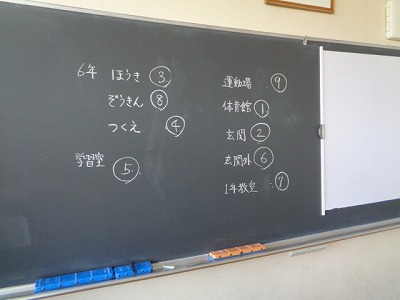 6年 ほうき ③
ぞうきん ⑧
つくえ ④
学習室 ⑤
運動場 ⑨
体育館 ①
玄関 ②
玄関外 ⑥
1年教室 ⑦